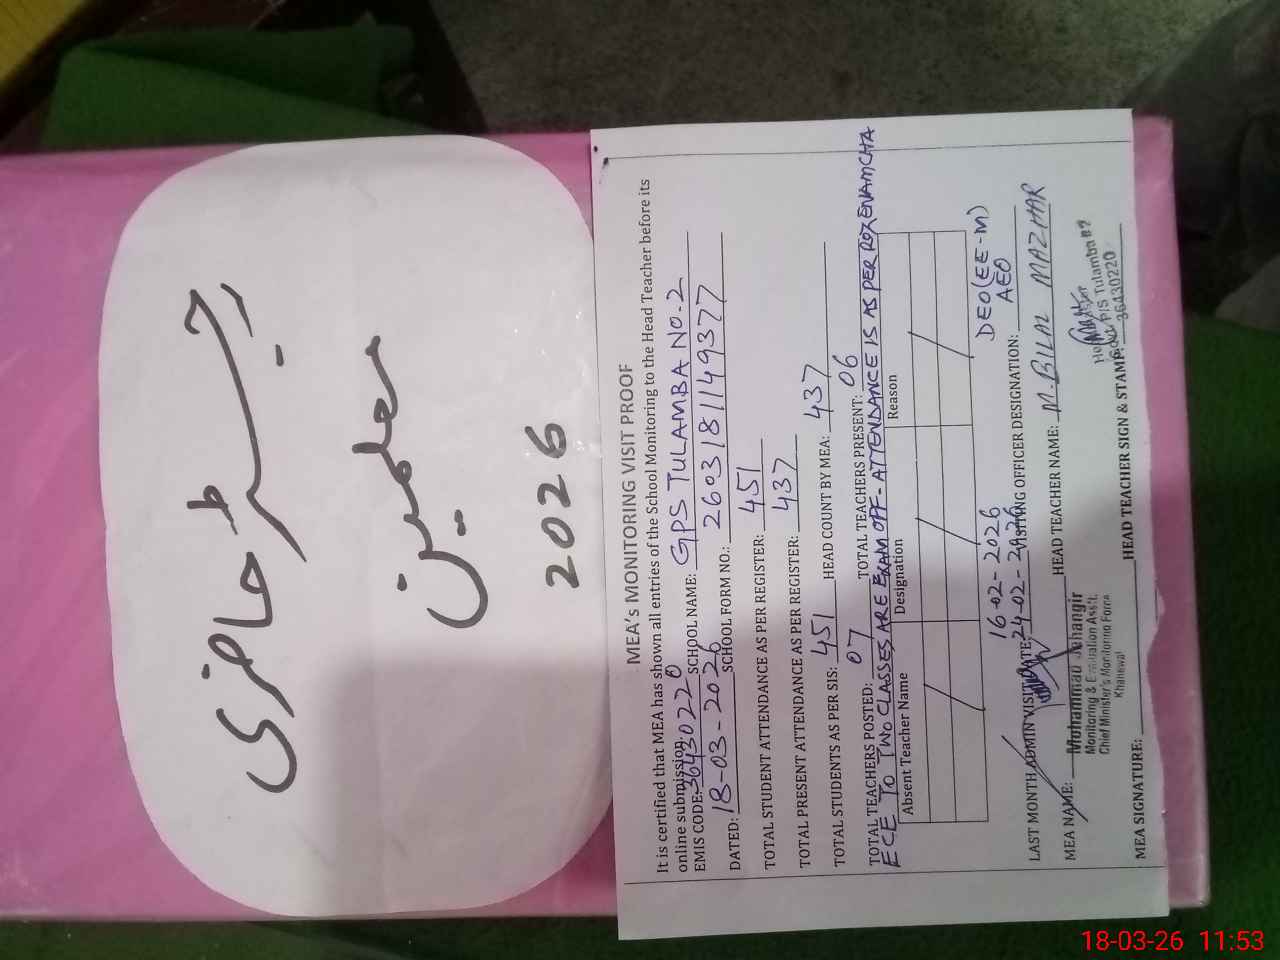 رجسٹر حاضری
معلمین
2026
MEA's MONITORING VISIT PROOF
It is certified that MEA has shown all entries of the School Monitoring to the Head Teacher before its
online submission.
EMIS CODE: 36430220 SCHOOL NAME: GPS TULAMBA NO.2
DATED: 18-03-2026 SCHOOL FORM NO.: 2603181149377
TOTAL STUDENT ATTENDANCE AS PER REGISTER: 451
TOTAL PRESENT ATTENDANCE AS PER REGISTER: 437
TOTAL STUDENTS AS PER SIS: 451 HEAD COUNT BY MEA: 437
TOTAL TEACHERS POSTED: 07 TOTAL TEACHERS PRESENT: 06
ECE TO TWO CLASSES ARE EXAM OFF-ATTENDANCE IS AS PER ROZENAMCHA
Absent Teacher Name Designation Reason
16-02-2026 DEO(EE-M)
LAST MONTH ADMIN VISIT DATE: 24-02-2026 VISITING OFFICER DESIGNATION: AEO
MEA NAME: HEAD TEACHER NAME: M.BILAL MAZHAR
Muhammad Jehangir
Monitoring & Evaluation Ass't.
Chief Minister's Monitoring Force
Khanewal
Govt. P/S Tulamba #2
36430220
MEA SIGNATURE: HEAD TEACHER SIGN & STAMP:
18-03-26 11:53